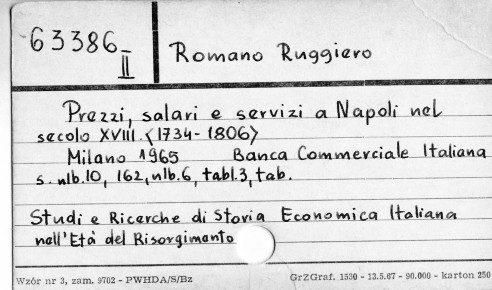 63386
II
Romano Ruggiero
Prezzi, salari e servizi a Napoli nel
secolo XVIII. <1734-1806>
Milano 1965 Banca Commerciale Italiana
s. nlb. 10, 162, nlb. 6, tabl. 3, tab.
Studi e Ricerche di Storia Economica Italiana
nell'Età del Risorgimento
Wzór nr 3, zam. 9702 - PWHDA/S/Bz GrZGraf. 1530 - 13.5.67 - 90.000 - karton 250